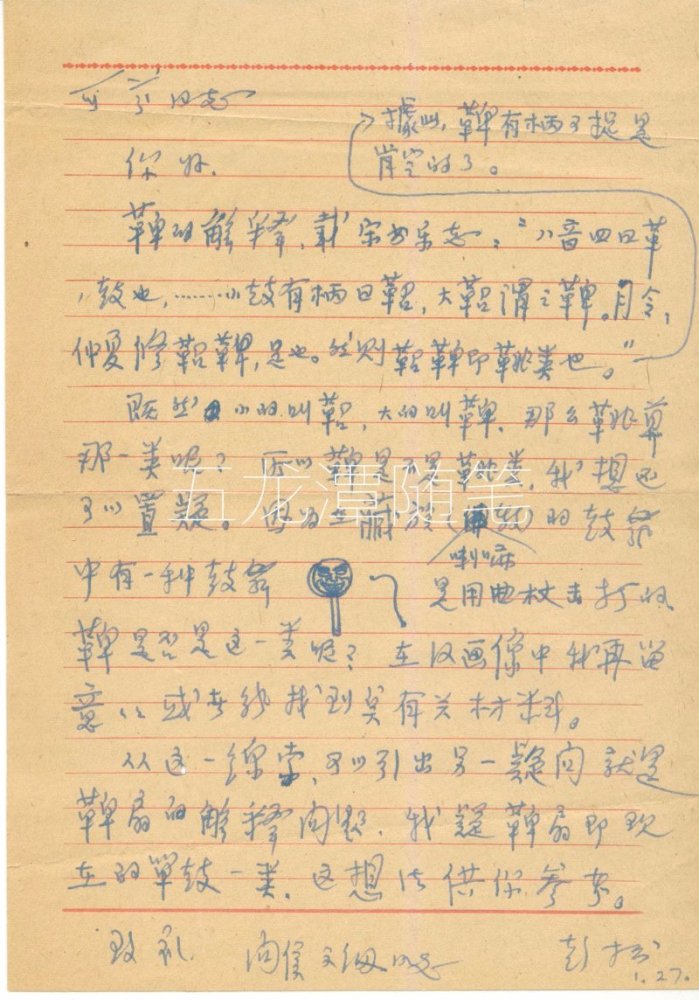 同志
→據此,鞞有柄可捉是
肯定的了。
你好.
鞞的解释,載宋书乐志:“八音四曰革
,鼓也,……小鼓有柄曰鞀,大鞀谓之鞞。月令,
仲夏修鞀鞞,是也。然则鞀鞞即鞉类也。”
既然小的叫鞀,大的叫鞞.那么鞉算
那一类呢?所以鞞是不是鞉类,我想还
可以置疑。因为在藏族的鼓乐
喇嘛
中有一种鼓
是用曲杖击打的.
鞞是否是这一类呢?在汉画像中我再留
意,或者能找到吴有关材料。
从这一线索,可以引出另一疑问就是
鞞扇的解释问题.我疑鞞扇即现
在的单鼓一类.这想法供你参考。
致礼 问侯同志 彭松
1.27.
五龙潭随笔